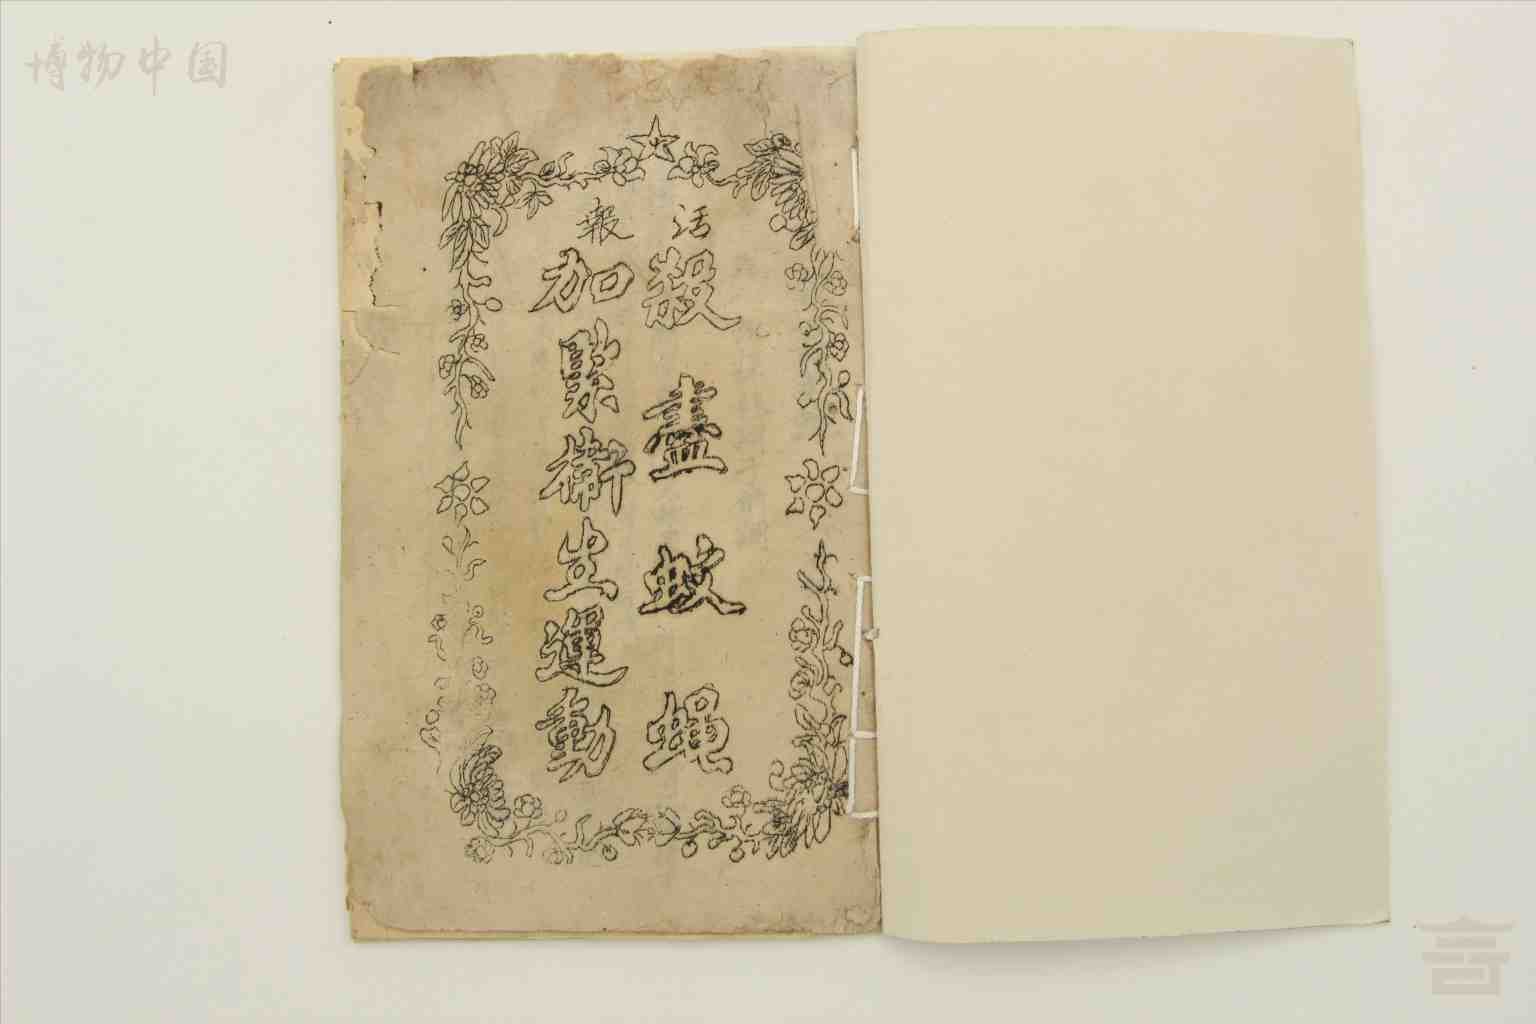 博物中国
活報
殺盡蚊蝇
加緊衛生運動